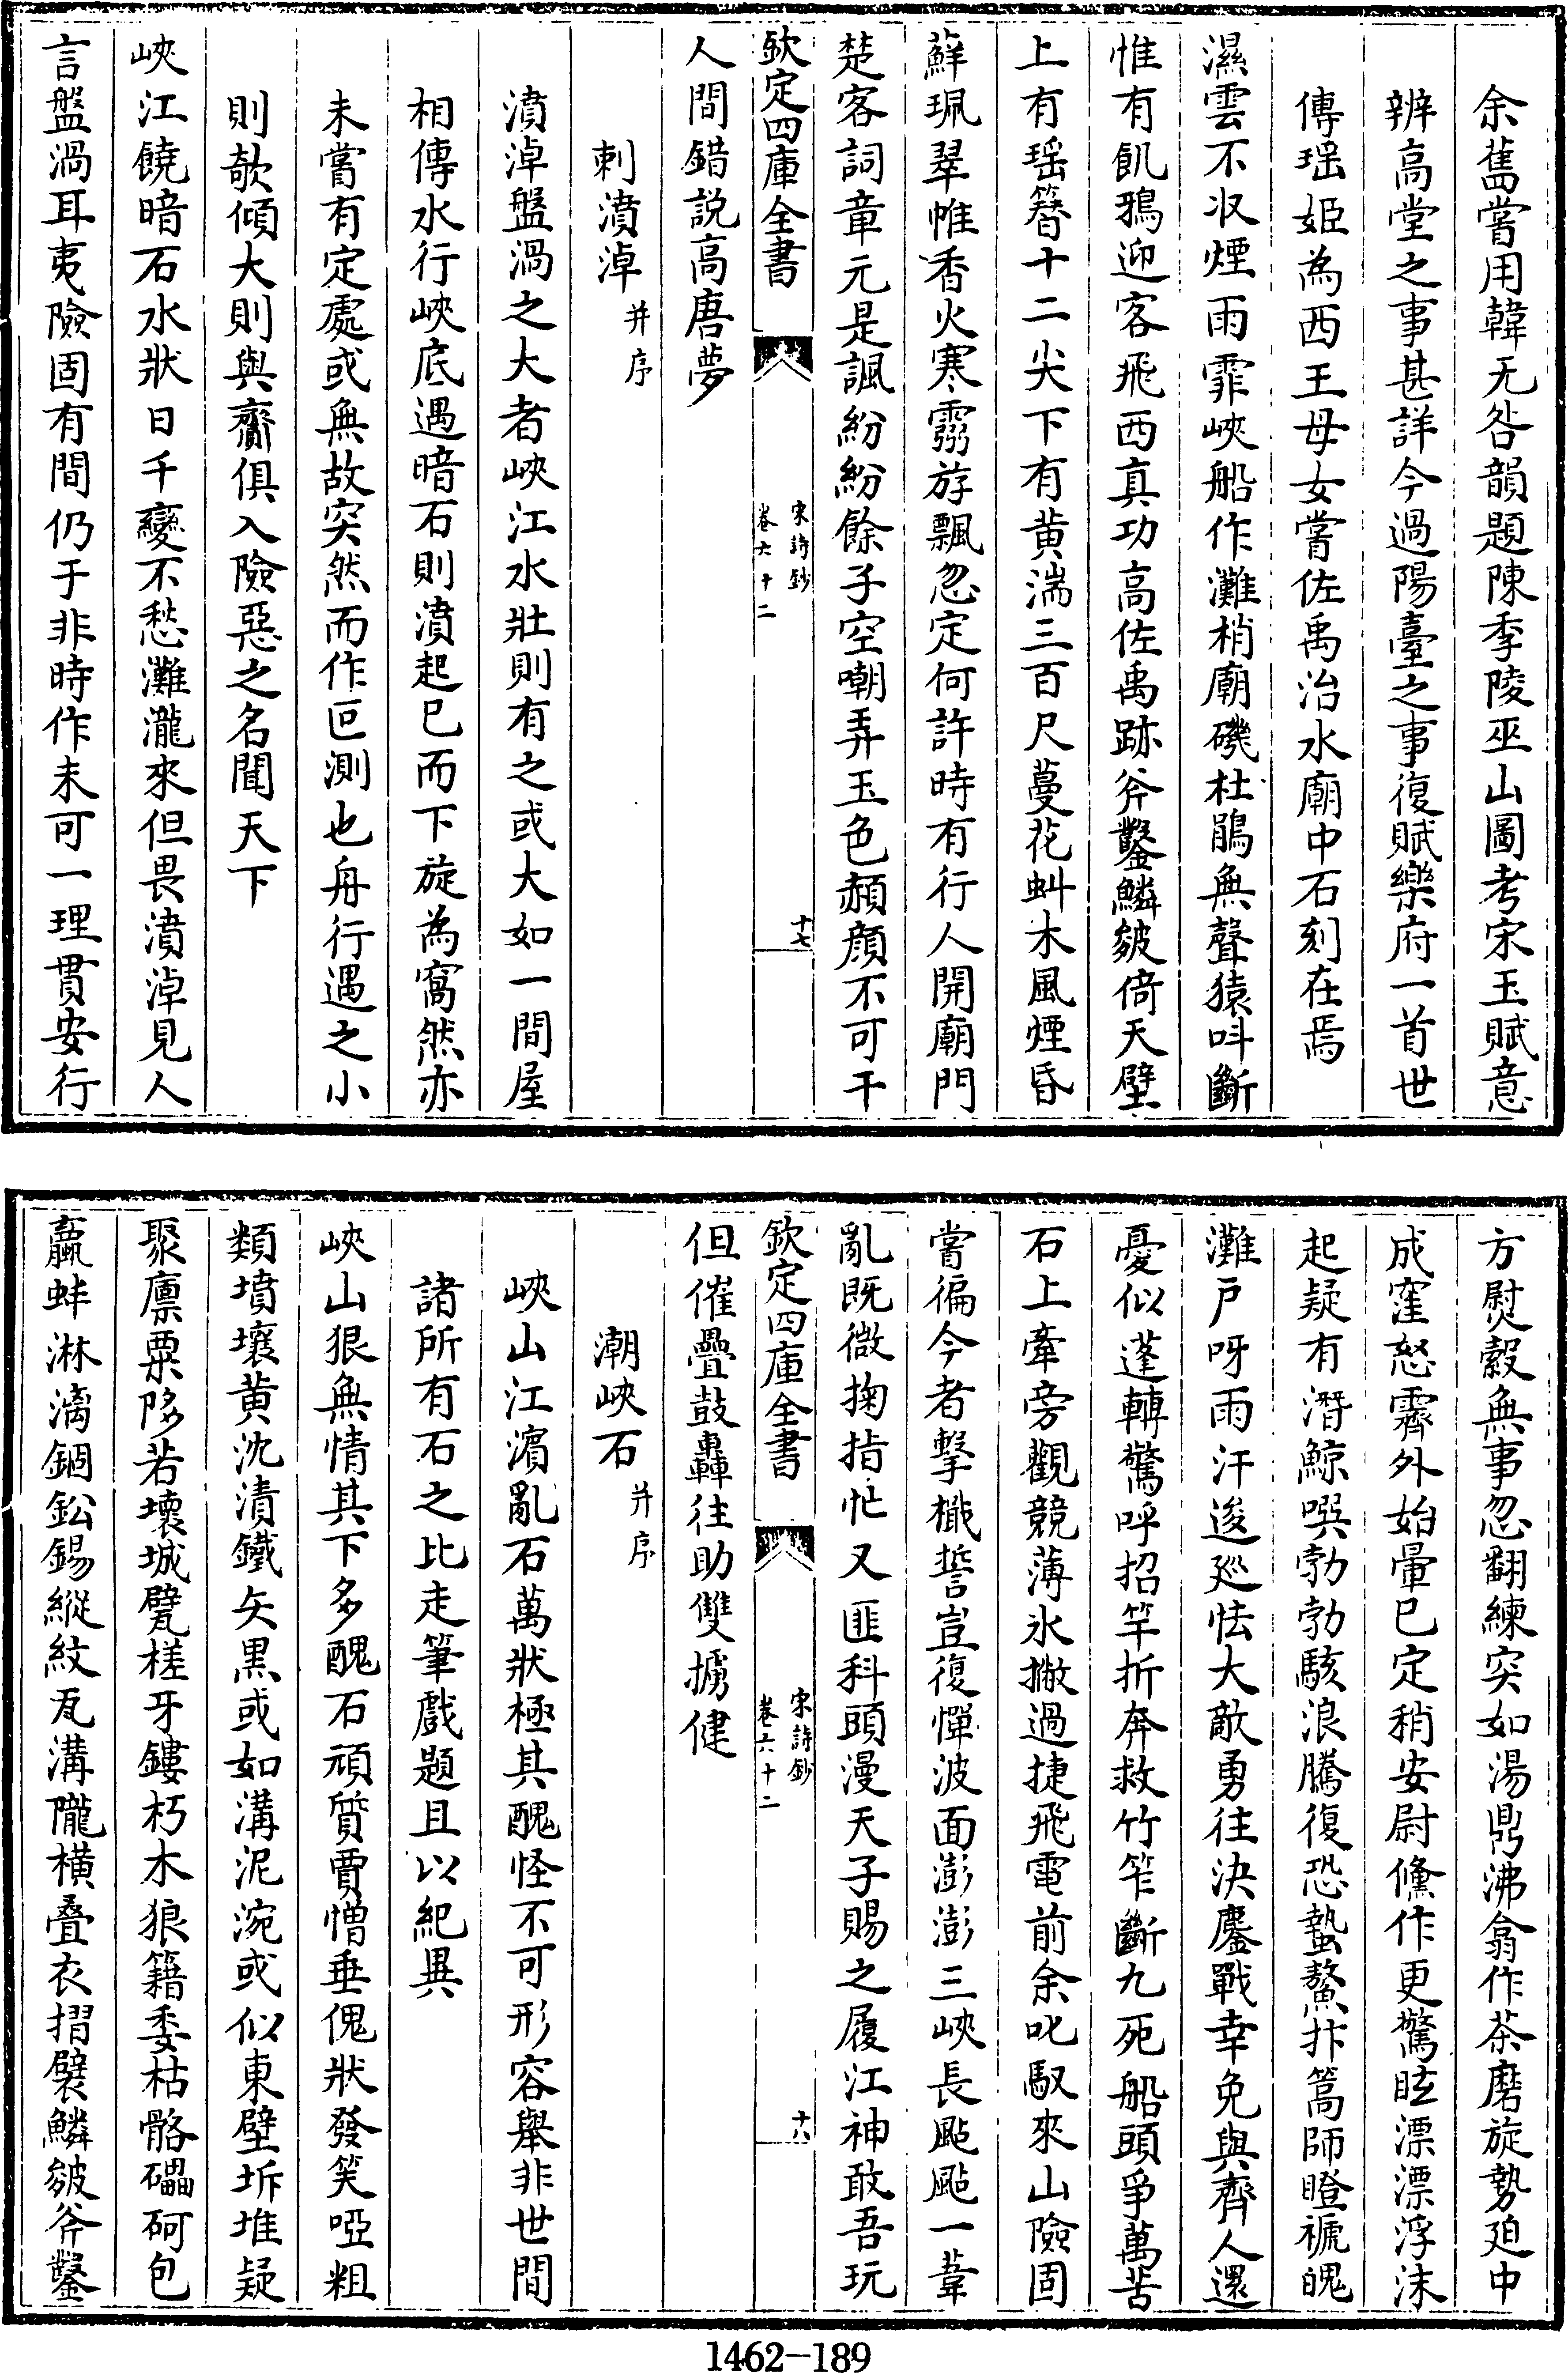 余舊嘗用韓无咎韻題陳季陵巫山圖考宋玉賦意
辨高堂之事甚詳今過陽臺之事復賦樂府一首世
傳瑶姬為西王母女嘗佐禹治水廟中石刻在焉
濕雲不收煙雨霏峽船作灘梢廟磯杜鵑無聲猿呌斷
惟有飢鴉迎客飛西真功高佐禹跡斧鑿鱗皴倚天壁
上有瑶簪十二尖下有黄湍三百尺蔓花虯木風煙昏
蘚珮翠帷香火寒霛游飄忽定何許時有行人開廟門
楚客詞章元是諷紛紛餘子空嘲弄玉色頳顔不可干
欽定四庫全書
宋詩鈔
卷六十二
十七
人間錯説高唐夢
刺濆淖
并序
濆淖盤渦之大者峽江水壯則有之或大如一間屋
相傳水行峽底遇暗石則濆起已而下旋為窩然亦
未嘗有定處或無故突然而作叵測也舟行遇之小
則欹傾大則與齎俱入險惡之名聞天下
峽江饒暗石水狀日千變不愁灘瀧來但畏濆淖見人
言盤渦耳夷險固有間仍于非時作未可一理貫安行
方熨縠無事忽翻練突如湯鼎沸翕作茶磨旋勢廹中
成窪怒霽外始暈已定稍安尉儵作更驚眩漂漂浮沫
起疑有潛鯨噀勃勃駭浪騰復恐蟄鰲抃篙師瞪褫魄
灘戸呀雨汗逡廵怯大敵勇往決鏖戰幸免與齊人還
憂似蓬轉驚呼招竿折奔救竹笮斷九死船頭爭萬苦
石上牽旁觀競薄氷撇過捷飛電前余叱馭來山險固
嘗徧今者擊檝誓豈復憚波面澎澎三峽長颭颭一葦
亂既微掬指忙又匪科頭漫天子賜之履江神敢吾玩
欽定四庫全書
宋詩鈔
卷六十二
十八
但催疊鼓轟往助雙擄健
潮峽石
并序
峽山江濵亂石萬狀極其醜怪不可形容舉非世間
諸所有石之比走筆戲題且以紀異
峽山狠無情其下多醜石頑質賈憎垂傀狀發笑啞粗
類墳壤黄沈漬鐵矢黒或如溝泥涴或似東壁坼堆疑
聚廪粟陊若壊城甓槎牙鏤朽木狼籍委枯骼礧砢包
蠃蚌淋漓錮鈆錫縱紋瓦溝隴横疊衣摺襞鱗皴斧鑿
1462-189